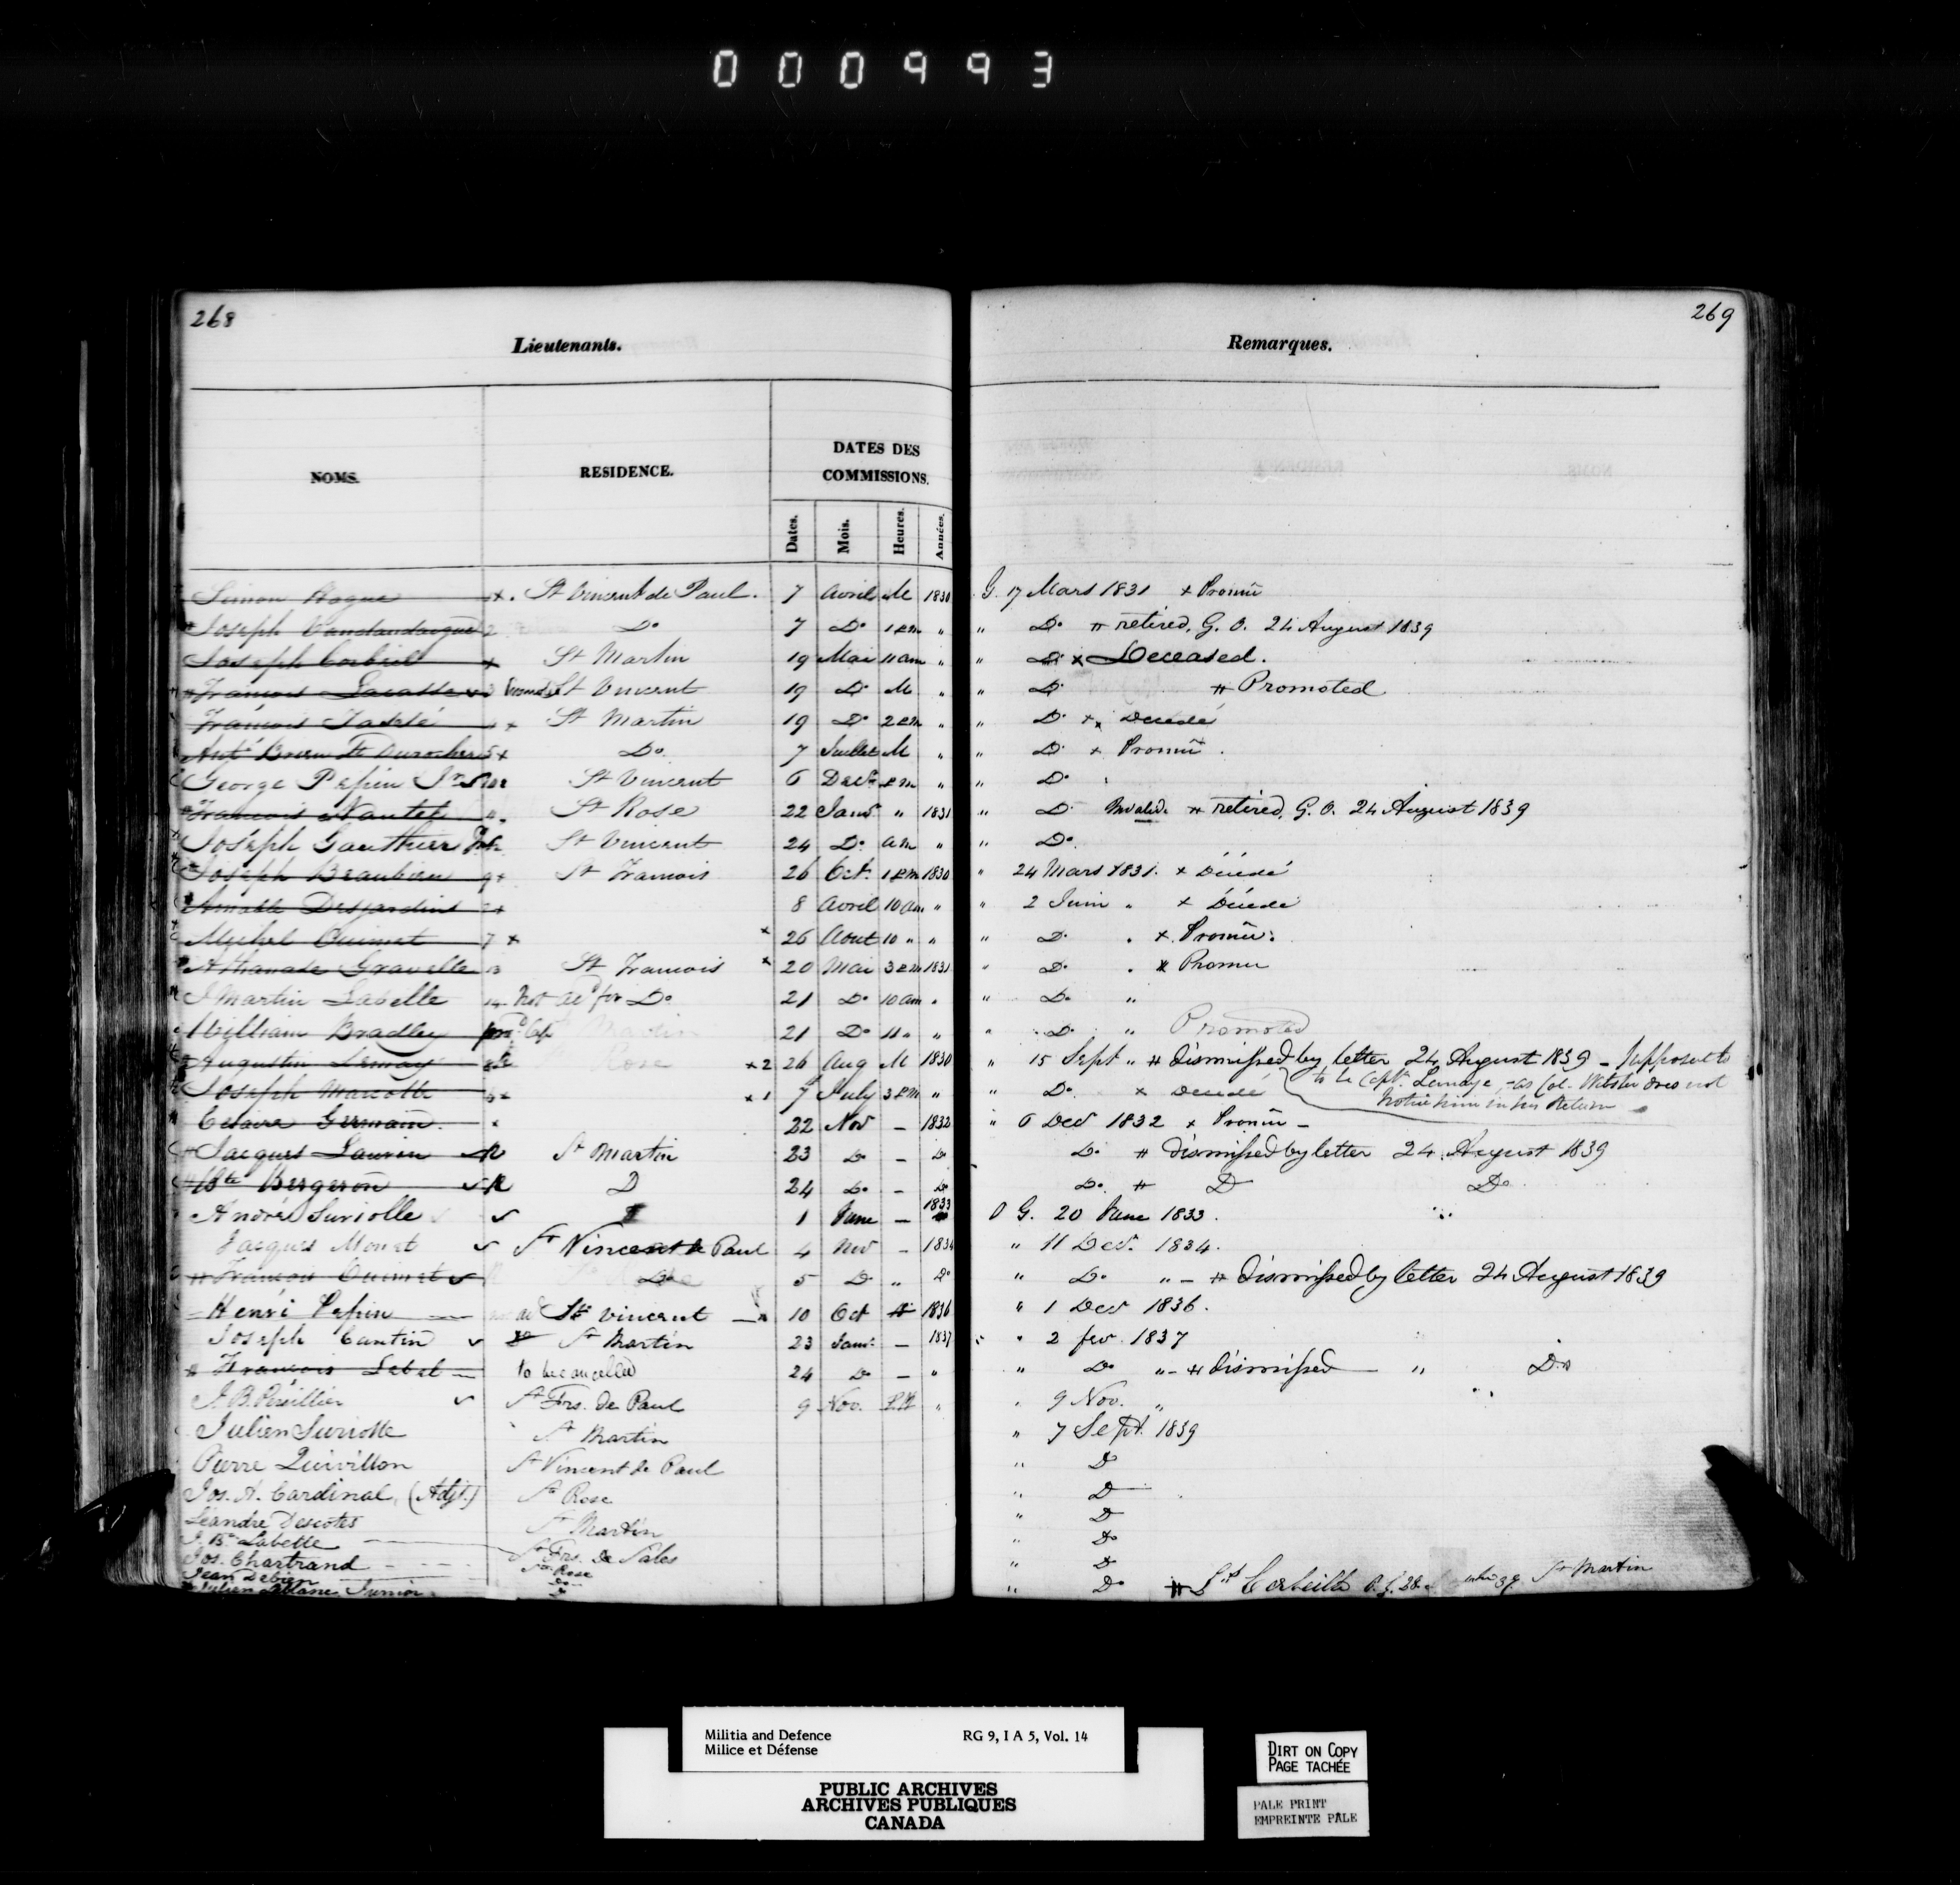 000993
268
Lieutenants.
NOMS. RESIDENCE. DATES DES COMMISSIONS.
Dates. Mois. Heures. Années.
Simon Hogue x. St Vincent de Paul. 7 Avril M 1830
Joseph Vandandaigue 2 Do 7 Do 1 PM "
Joseph Corbeil x St Martin 19 Mai 11 am "
François Lacasse St Vincent 19 Do M "
François Taddé x St Martin 19 Do 2 PM "
Antr Brien dt Durocher 5 x Do 7 Juillet M "
George Pepin Jr St Vincent 6 Decr PM "
François Nantel St Rose 22 Janr " 1831
Joseph Gauthier St Vincent 24 Do am "
Joseph Beaubien 9 x St Francois 26 Oct. 1 PM 1830
Amable Desjardins x 8 Avril 10 am "
Michel Ouimet 7 x x 26 Aout 10 " "
Athanase Gravelle St Francois x 20 Mai 3 PM 1831
J Martin Labelle 14 Do 21 Do 10 am "
William Bradley 21 Do 11 " "
Augustin Lemay Rose x2 26 Aug M 1830
Joseph Marcotte x1 7 July 3 PM "
Celaire Germain x 22 Nov – 1832
Jacques Laurin St Martin 23 Do – Do
Bte Bergeron D 24 Do – Do
André Suriolle 1 June – 1833
Jacques Monet St Vincent de Paul 4 Nov – 1834
François Ouimet Do 5 Do " Do
Henri Pepin St Vincent 10 Oct 1836
Joseph Cantin St Martin 23 Janr – 1837
François Lebel to be cancelled 24 Do – "
J. B. St Frs. de Paul 9 Nov. P.M. "
Julien Suriolle St Martin
Pierre Quivillon St Vincent de Paul
Jos. A. Cardinal, (Adjt.) St Rose
Léandre Descotes St Martin
J. Bte Labelle
Jos. Chartrand St Frs. de Sales
Jean Debien Ste Rose
Julien Leblanc Junior Do
269
Remarques.
G. 17 Mars 1831 x Promu
" Do # retired, G. O. 24 August 1839
" Do x Deceased.
" Do # Promoted
" Do x Décédé
" Do x Promu.
" Do
" Do Invalid. # retired, G. O. 24 August 1839
" Do.
" 24 Mars 1831. x Décédé
" 2 Juin " x Décédé
" Do " x Promu.
" Do " x Promu
" Do "
" Do " Promoted
" 15 Sept " # Dismissed by letter 24 August 1839 – Supposed to
to be Capt. Lemaye, – as Col. Webster does not
notice him in his Return
" Do x Décédé
" 6 Dec 1832 x Promu –
Do # Dismissed by letter 24 August 1839
Do # D Do
O G. 20 June 1833.
" 11 Dec. 1834.
" Do " – # Dismissed by letter 24 August 1839
" 1 Dec 1836.
" 2 fev. 1837
" Do " – # Dismissed " Do
" 9 Nov. "
" 7 Sept. 1839
" D
" D
" D
" Do
" D
" Do # Corbeille St Martin
Militia and Defence RG 9, I A 5, Vol. 14
Milice et Défense
PUBLIC ARCHIVES
ARCHIVES PUBLIQUES
CANADA
DIRT ON COPY
PAGE TACHÉE
PALE PRINT
EMPREINTE PÂLE